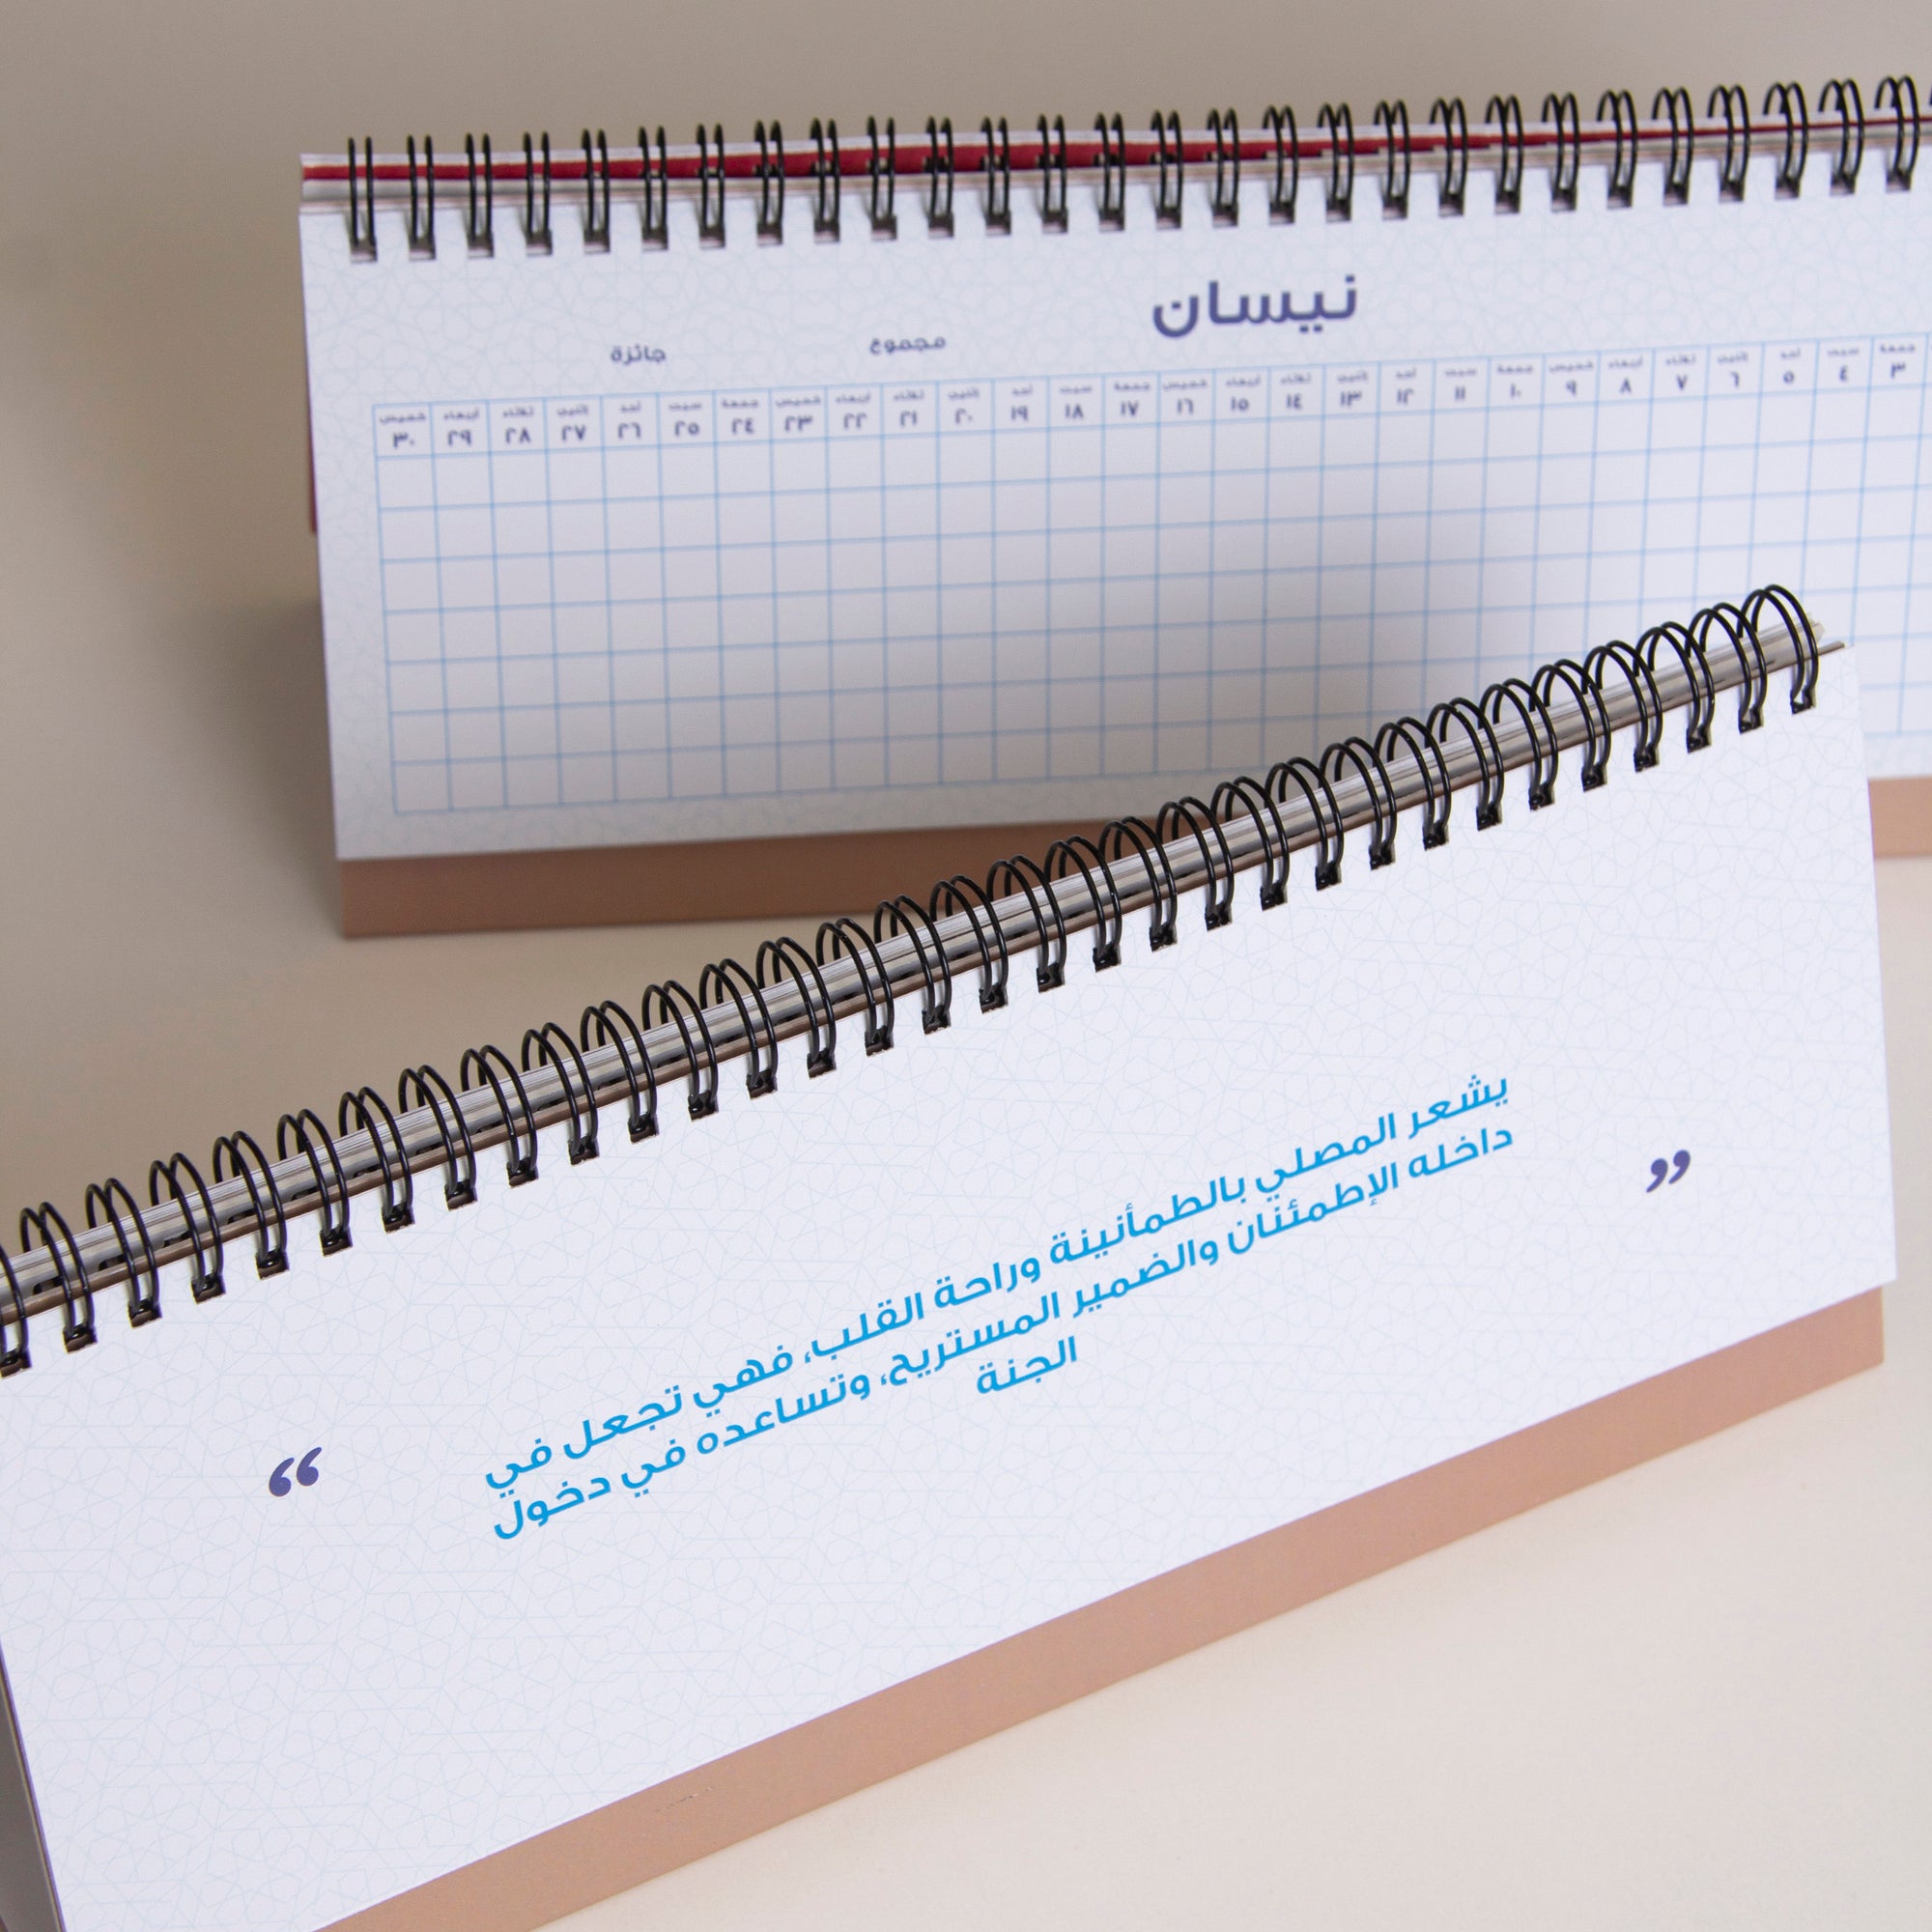 نيسان
مجموع
جائزة
جمعة سبت أحد اثنين ثلاثاء أربعاء خميس جمعة سبت أحد اثنين ثلاثاء أربعاء خميس جمعة سبت أحد اثنين ثلاثاء أربعاء خميس جمعة سبت أحد اثنين ثلاثاء أربعاء خميس
٣ ٤ ٥ ٦ ٧ ٨ ٩ ١٠ ١١ ١٢ ١٣ ١٤ ١٥ ١٦ ١٧ ١٨ ١٩ ٢٠ ٢١ ٢٢ ٢٣ ٢٤ ٢٥ ٢٦ ٢٧ ٢٨ ٢٩ ٣٠
يشعر المصلي بالطمأنينة وراحة القلب، فهي تجعل في
داخله الإطمئنان والضمير المستريح، وتساعده في دخول
الجنة